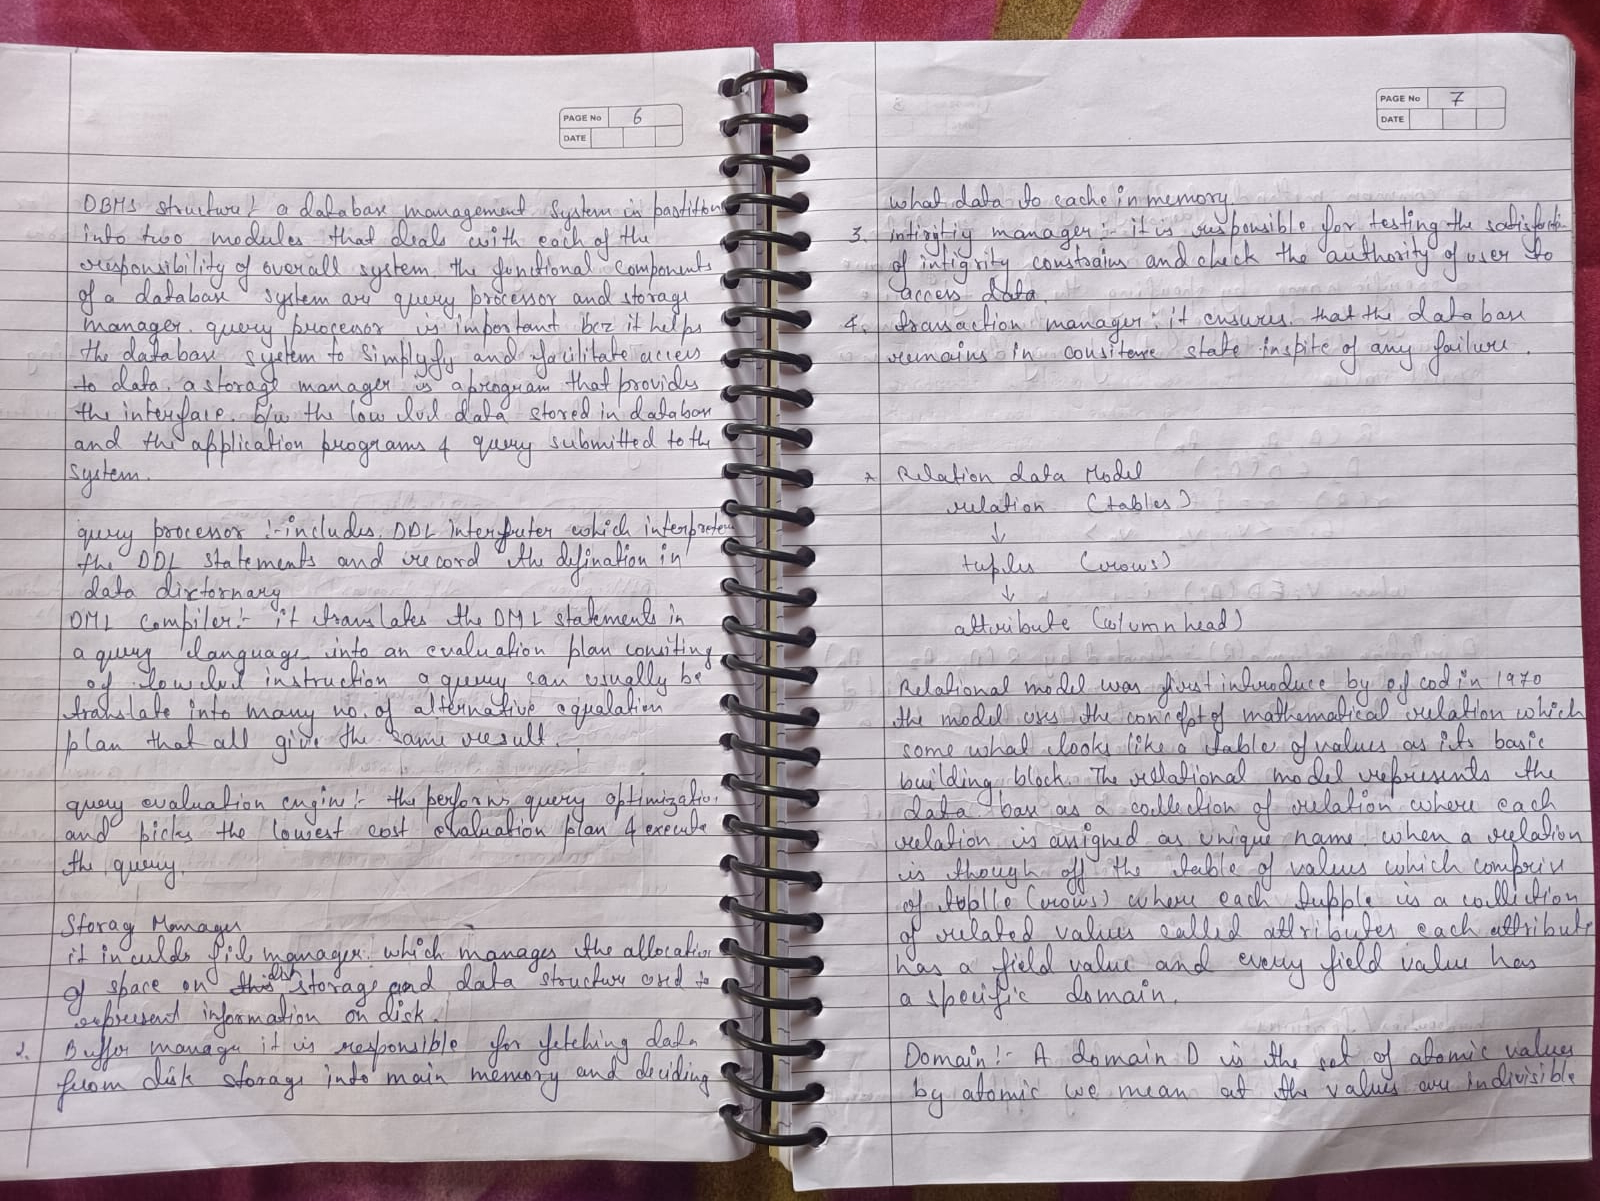 PAGE No 6
DATE
DBMS structure:- a database management system is partition
into two modules that deals with each of the
responsibility of overall system. the funitional components
of a database system are query processor and storage
manager. query processor is important bcz it helps
the database system to simplyfy and facilitate access
to data. a storage manager is a program that provides
the interface. b/w the low level data stored in database
and the application programs & query submitted to the
system.
query processor :- includes. DDL interputer which interprete
the DDL statements and record the defination in
data dirtornary
DML compiler:- it translates the DML statements in
a query language into an evaluation plan consiting
of low level instruction a query can usually be
translate into many no. of alternative equalation
plan that all give the same result.
query evaluation engine:- the performs query optimization
and picks the lowest cost evaluation plan & execute
the query.
Storag Manager
it inculds file manager. which manages the allocation
of space on disk storage and data structure used to
represent information on disk.
2. Buffer manager it is responsible for fetching data
from disk storage into main memory and deciding
PAGE No 7
DATE
what data to cache in memory.
3. intirgtiy manager:- it is responsible for testing the
of intigrity constrains and check the authority of user to
access data.
4. transaction manager: it ensures. that the database
remains in state inspite of any failure.
Relation data Model
relation (tables)
↓
tuples (rows)
↓
attribute (column head)
Relational model was first introduce by of cod in 1970
the model uses the concept of mathematical relation which
some what looks like a table of values as its basic
building block. The rellational model represents the
data base as a collection of relation where each
relation is assigned as unique name. when a relation
is though off the table of values which comprise
of (rows) where each tupple is a collection
of related values called attributes each attribute
has a field value and every field value has
a specific domain.
Domain:- A domain D is the set of atomic values
by atomic we mean at the values are indivisible